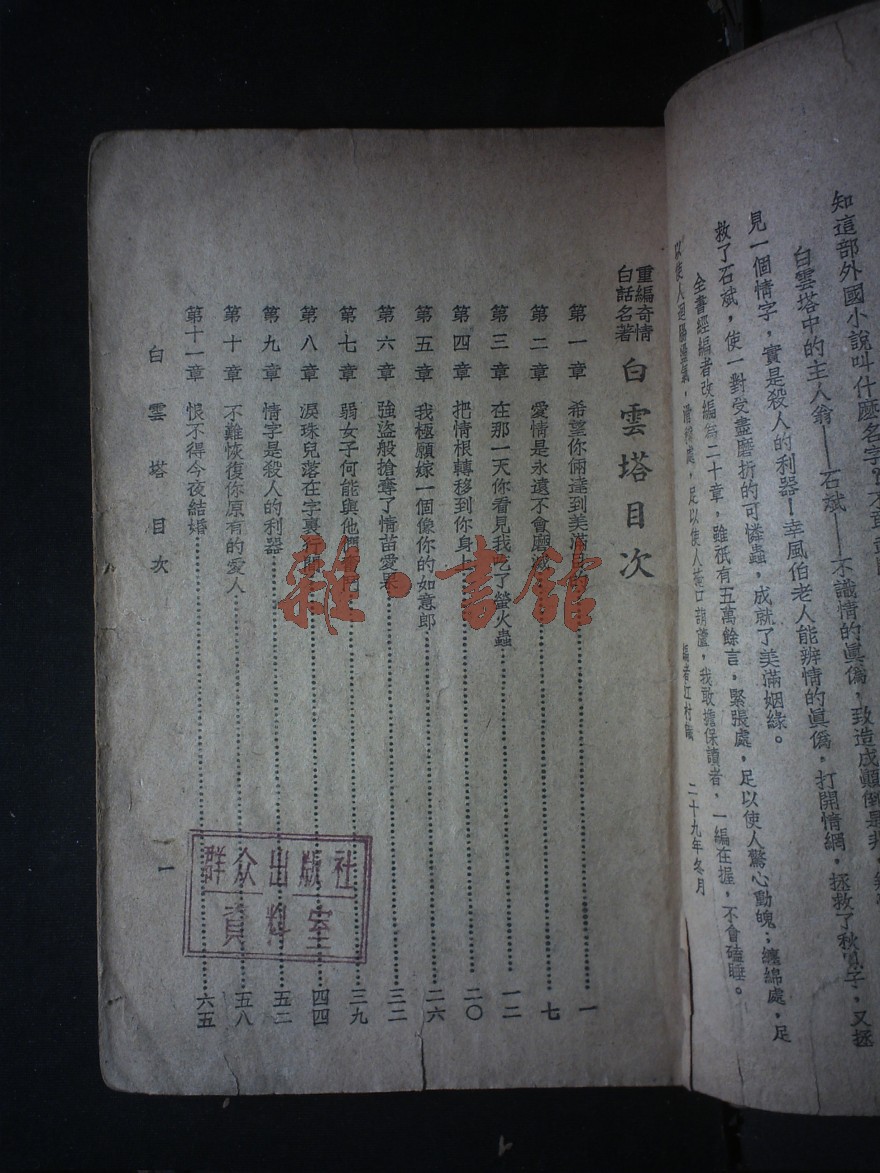 知這部外國小說叫什麽名字
白雲塔中的主人翁——石斌——不識情的眞僞，致造成顚倒是非，
見一個情字，實是殺人的利器！幸風伯老人能辨情的眞僞，打開情網，拯救了秋鳳子，又拯
救了石斌，使一對受盡磨折的可憐蟲，成就了美滿姻緣。
全書經編者改編爲二十章，雖祇有五萬餘言，緊張處，足以使人驚心動魄；纏綿處，足
以使人迴腸盪氣，滑稽處，足以使人掩口葫蘆，我敢擔保讀者，一編在握，不會瞌睡。
編者江村識　二十九年冬月
重編奇情
白話名著
白雲塔目次
第一章　希望你倆達到美滿目的……一
第二章　愛情是永遠不會磨滅……七
第三章　在那一天你看見我吃了螢火蟲……一二
第四章　把情根轉移到你身上……二〇
第五章　我極願嫁一個像你的如意郎……二六
第六章　強盜般搶奪了情苗愛果……三二
第七章　弱女子何能與他們……三九
第八章　淚珠兒落在字裏行間……四四
第九章　情字是殺人的利器……五二
第十章　不難恢復你原有的愛人……五八
第十一章　恨不得今夜結婚……六五
白雲塔目次
一
群众出版社
資料室
雜·書館